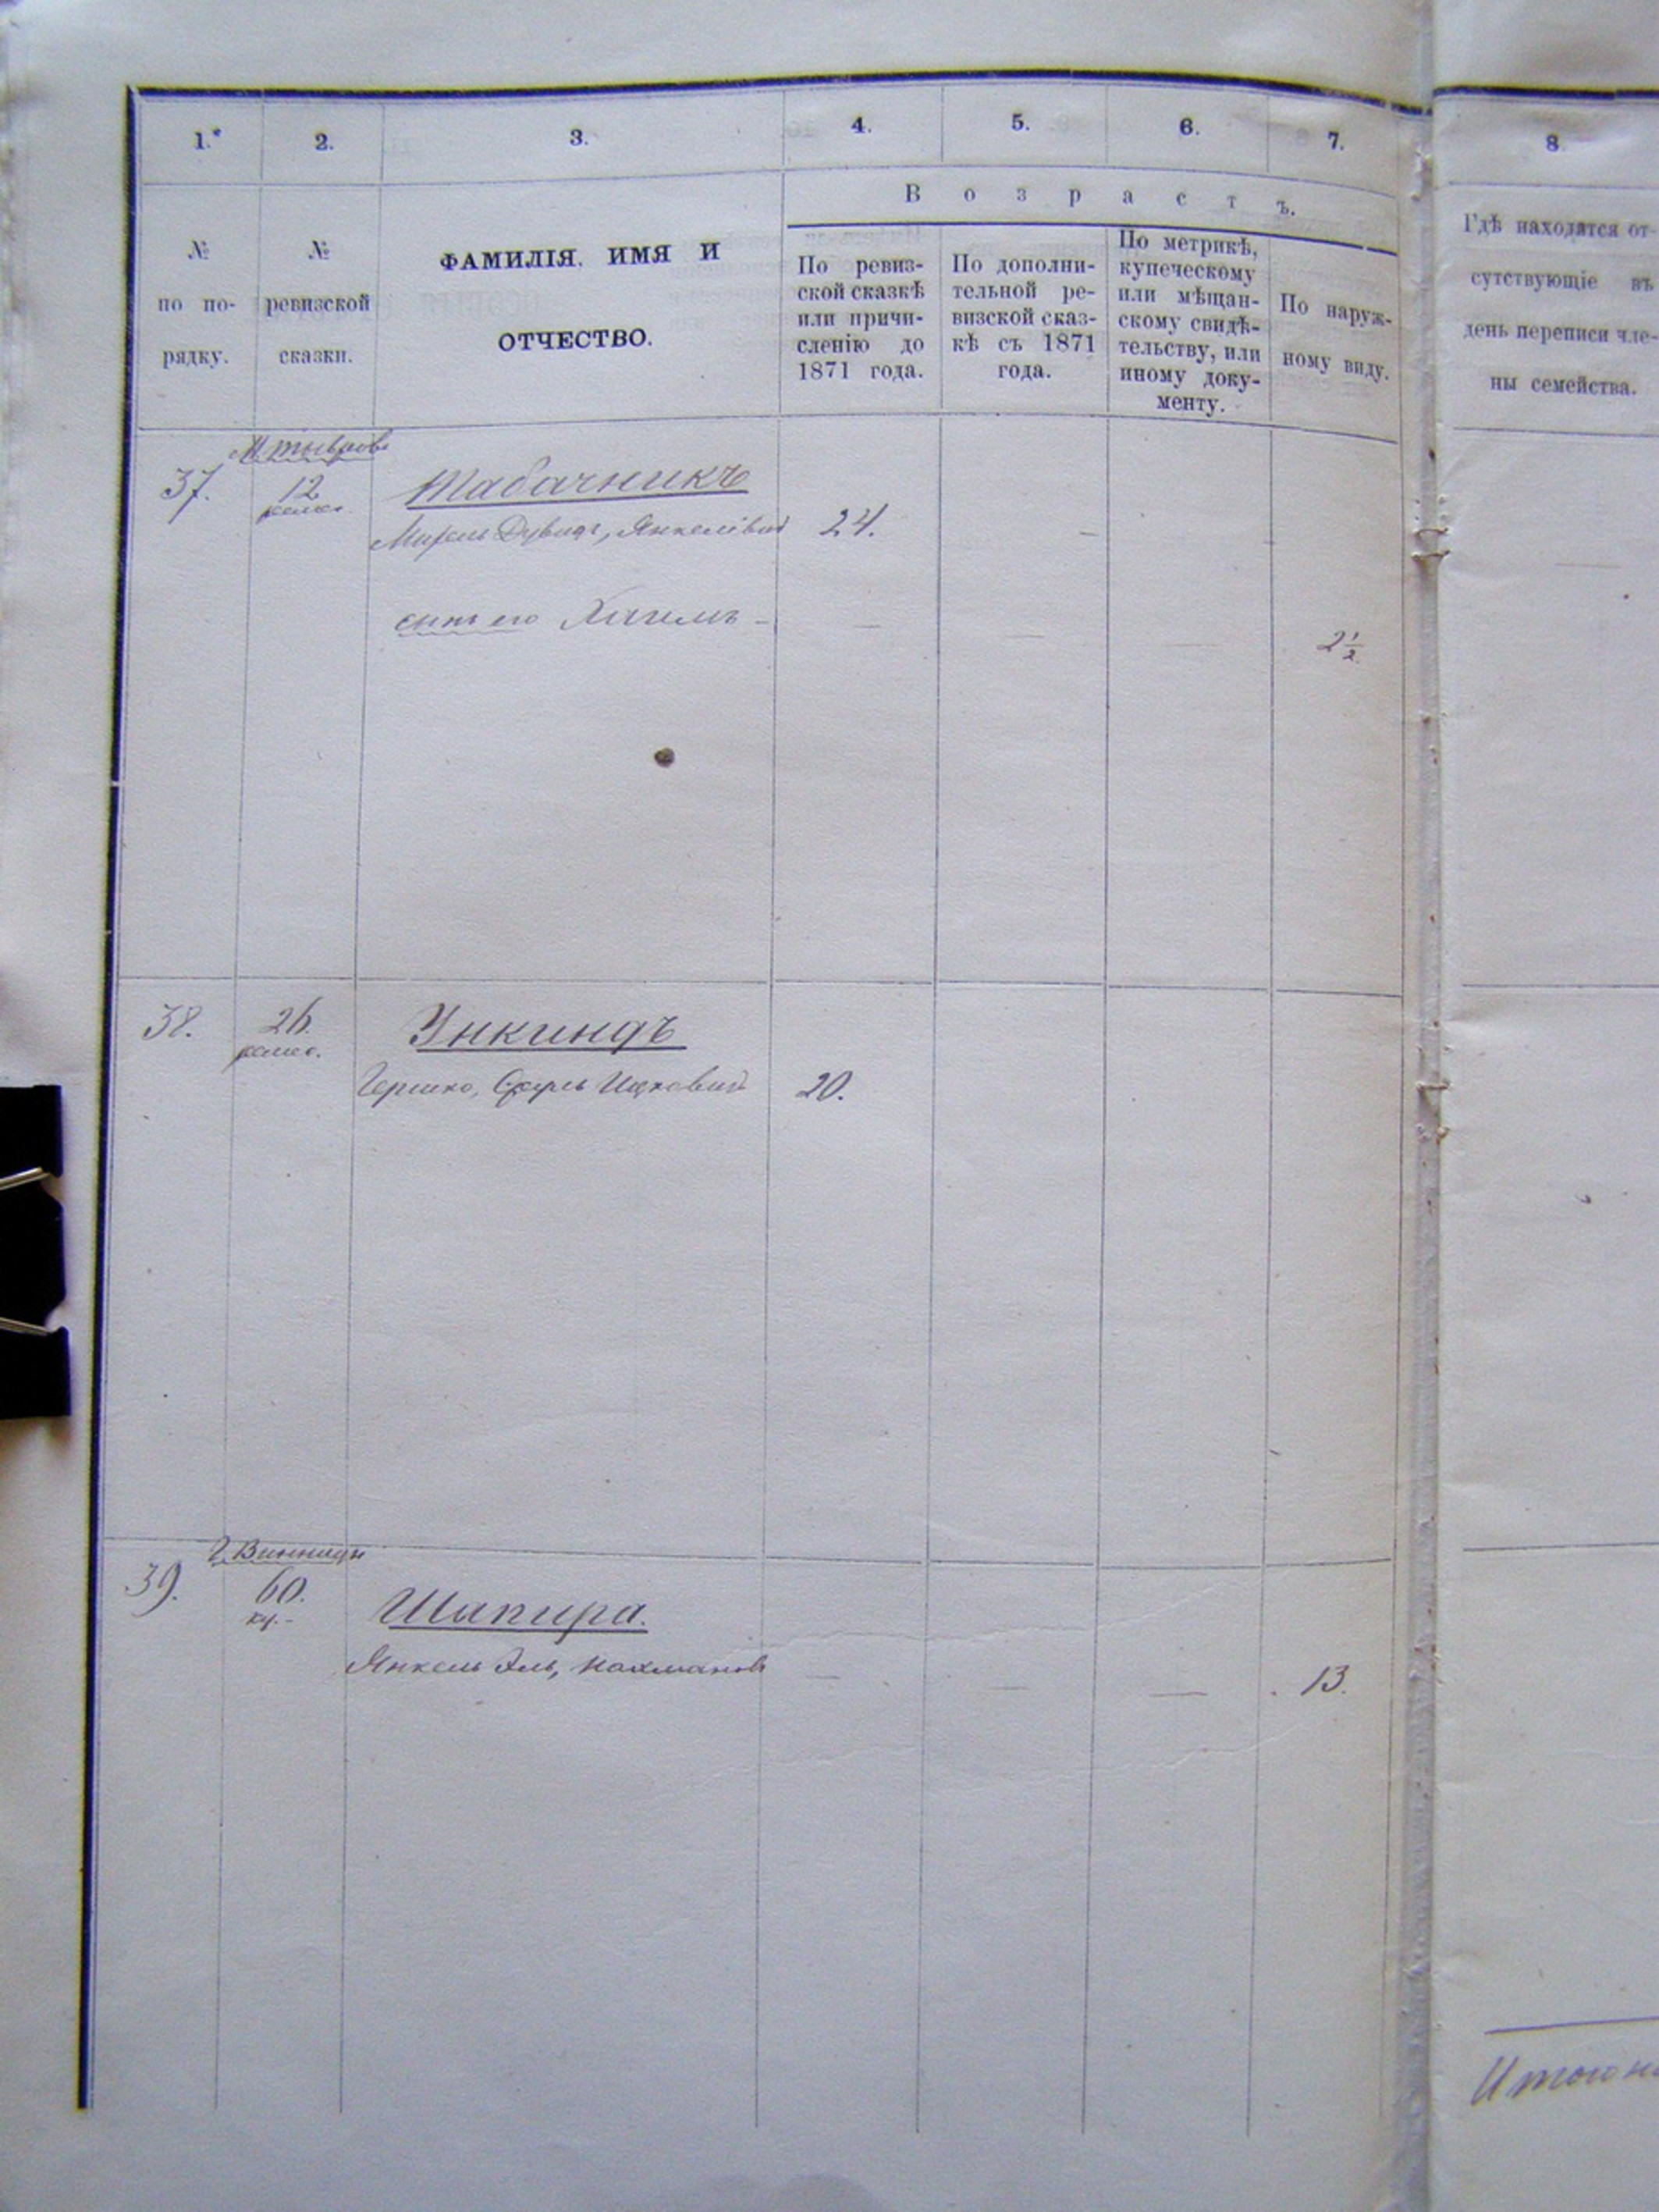 1. 2. 3. 4. 5. 6. 7. 8
В о з р а с т ъ.
№ по по-рядку.
№ ревизской сказки.
ФАМИЛІЯ, ИМЯ И
ОТЧЕСТВО.
По ревиз-
ской сказкѣ
или причи-
сленію до
1871 года.
По дополни-
тельной ре-
визской сказ-
кѣ съ 1871
года.
По метрикѣ,
купеческому
или мѣщан-
скому свидѣ-
тельству, или
иному доку-
менту.
По наруж-
ному виду.
Гдѣ находятся от-
сутствующіе въ
день переписи чле-
ны семейства.
М. Тывровъ
37. 12 Табачникъ
Дувидъ, Янкелівъ 24. —
сынъ его Хаимъ — — — — 2 1/2
38. 26.Ункиндъ
Гершко, Сруль Ицковичъ 20.
г. Винницы
39. 60. Шапира.
ку.-
Янкель Эль, Нахмановъ — — — 13.
Итого